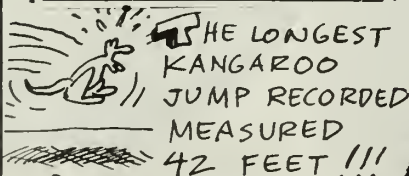 THE LONGEST
KANGAROO
JUMP RECORDED
MEASURED
42 FEET !!!